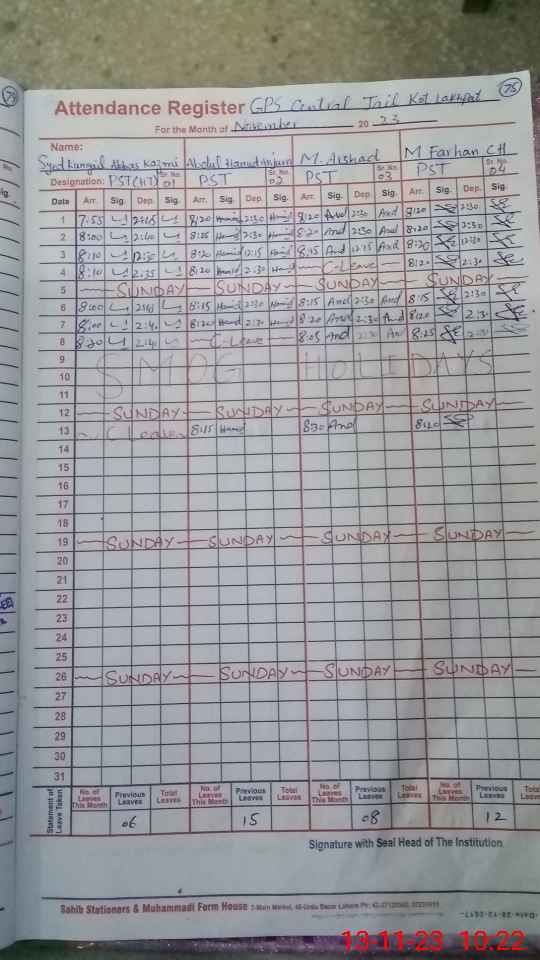 75
Attendance Register GPS Central Jail Kot Lakhpat
For the Month of November 20 23
Name:
Syed Kumail Abbas Kazmi Abdul Hameed Anjum M. Arshad M Farhan CH
Designation: PST(HT) Sr. No. 01 PST Sr. No. 02 PST Sr. No. 03 PST Sr. No. 04
Date Arr. Sig. Dep. Sig. Arr. Sig. Dep. Sig. Arr. Sig. Dep. Sig. Arr. Sig. Dep. Sig.
1 7:55 8:20 2:30 8:20 2:30 8:20 2:30
2 8:00 2:40 8:15 2:30 8:20 2:30 8:20 2:30
3 8:10 12:30 8:20 12:15 8:15 12:15 8:20 12:30
4 8:10 2:35 8:20 2:30 C-Leave 8:20 2:30
5 SUNDAY SUNDAY SUNDAY SUNDAY
6 8:00 8:15 2:30 8:15 2:30 8:15 2:30
7 8:00 2:40 8:20 2:30 8:20 2:30 8:20 2:30
8 8:20 2:40 C-Leave 8:05 2:30 8:25 2:30
9
SMOG HOLIDAYS
10
11
12 SUNDAY SUNDAY SUNDAY SUNDAY
13 C Leave 8:15 8:30 8:20
14
15
16
17
18
19 SUNDAY SUNDAY SUNDAY SUNDAY
20
21
22
23
24
25
26 SUNDAY SUNDAY SUNDAY SUNDAY
27
28
29
30
31
Statement of Leave Taken No. of Leaves This Month Previous Leaves Total Leaves No. of Leaves This Month Previous Leaves Total Leaves No. of Leaves This Month Previous Leaves Total Leaves No. of Leaves This Month Previous Leaves
06 15 08 12
Signature with Seal Head of The Institution
Sahib Stationers & Muhammadi Form House
13-11-23 10.22